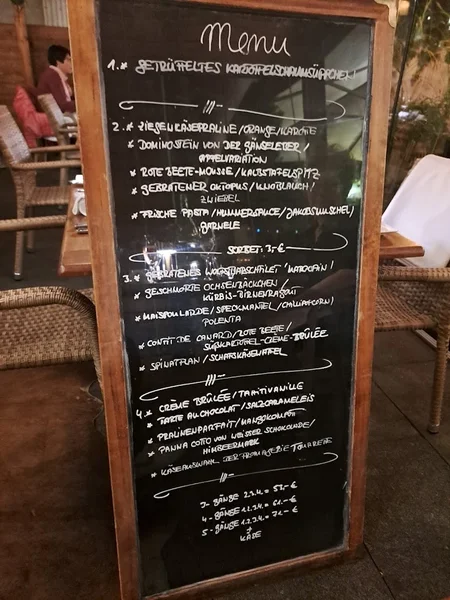 Menu
1.* GETRÜFFELTES KARTOFFELSCHAUMSÜPPCHEN
2.* ZIEGENKÄSEPRALINE/ORANGE/KAROTTE
* DOMINOSTEIN VON DER GÄNSELEBER/
APFELVARIATION
* ROTE BEETE-MOUSSE/KALBSTAFELSPITZ
* GEBRATENER OKTOPUS/KNOBLAUCH/
ZWIEBEL
* FRISCHE PASTA/HUMMERSAUCE/JAKOBSMUSCHEL/
GARNELE
SORBET: 3,-€
3. * GEBRATENES WOLFSBARSCHFILET
* GESCHMORTE OCHSENBÄCKCHEN/
KÜRBIS-BIRNENRAGOUT
* MAISPOULARDE/SPECKMANTEL/
POLENTA
* CONFIT DE CANARD/ROTE BEETE/
SÜßKARTOFFEL-CRÈME-BRÛLÉE
* SPINATFLAN/SCHAFSKÄSE
4.* CRÈME BRÛLÉE/TAHITIVANILLE
* TARTE AU CHOCOLAT/SALZCARAMELEIS
* PRALINENPARFAIT/MANGOKOMPOTT
* PANNA COTTO VON WEISSER SCHOKOLADE/
HIMBEERMARK
* KÄSEAUSWAHL DER FROMAGERIE
3-GÄNGE 2.3.4. = 52,-€
4-GÄNGE 1.2.3.4. = 61,-€
5-GÄNGE 1.2.3.4. = 71,-€
+
KÄSE